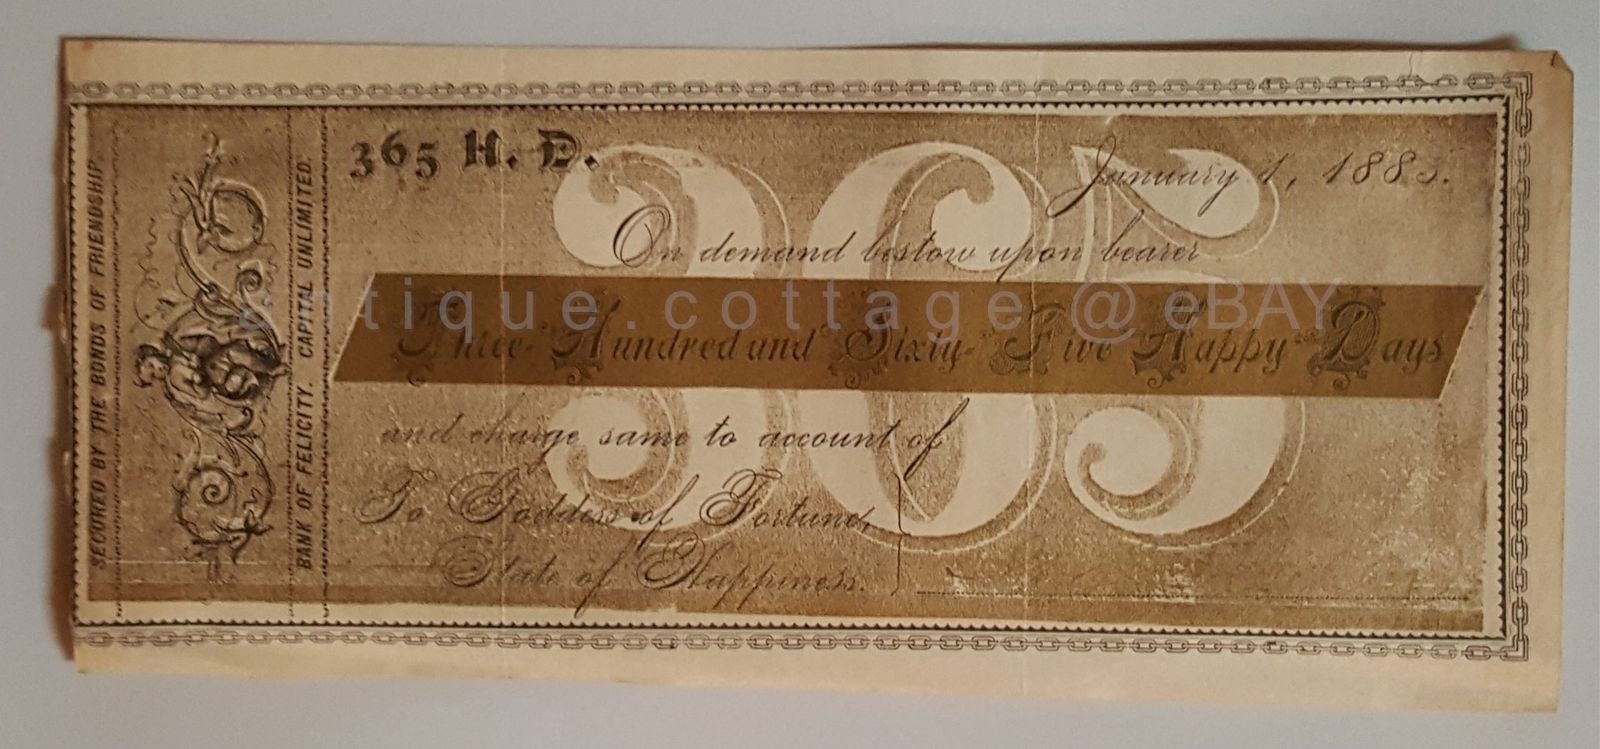 SECURED BY THE BONDS OF FRIENDSHIP.
BANK OF FELICITY. CAPITAL UNLIMITED.
365 H. D.
365
January 1, 1883.
On demand bestow upon bearer
Three-Hundred and Sixty-Five Happy Days
antique.cottage@eBAY
and charge same to account of
To Goddess of Fortune,
State of Happiness.